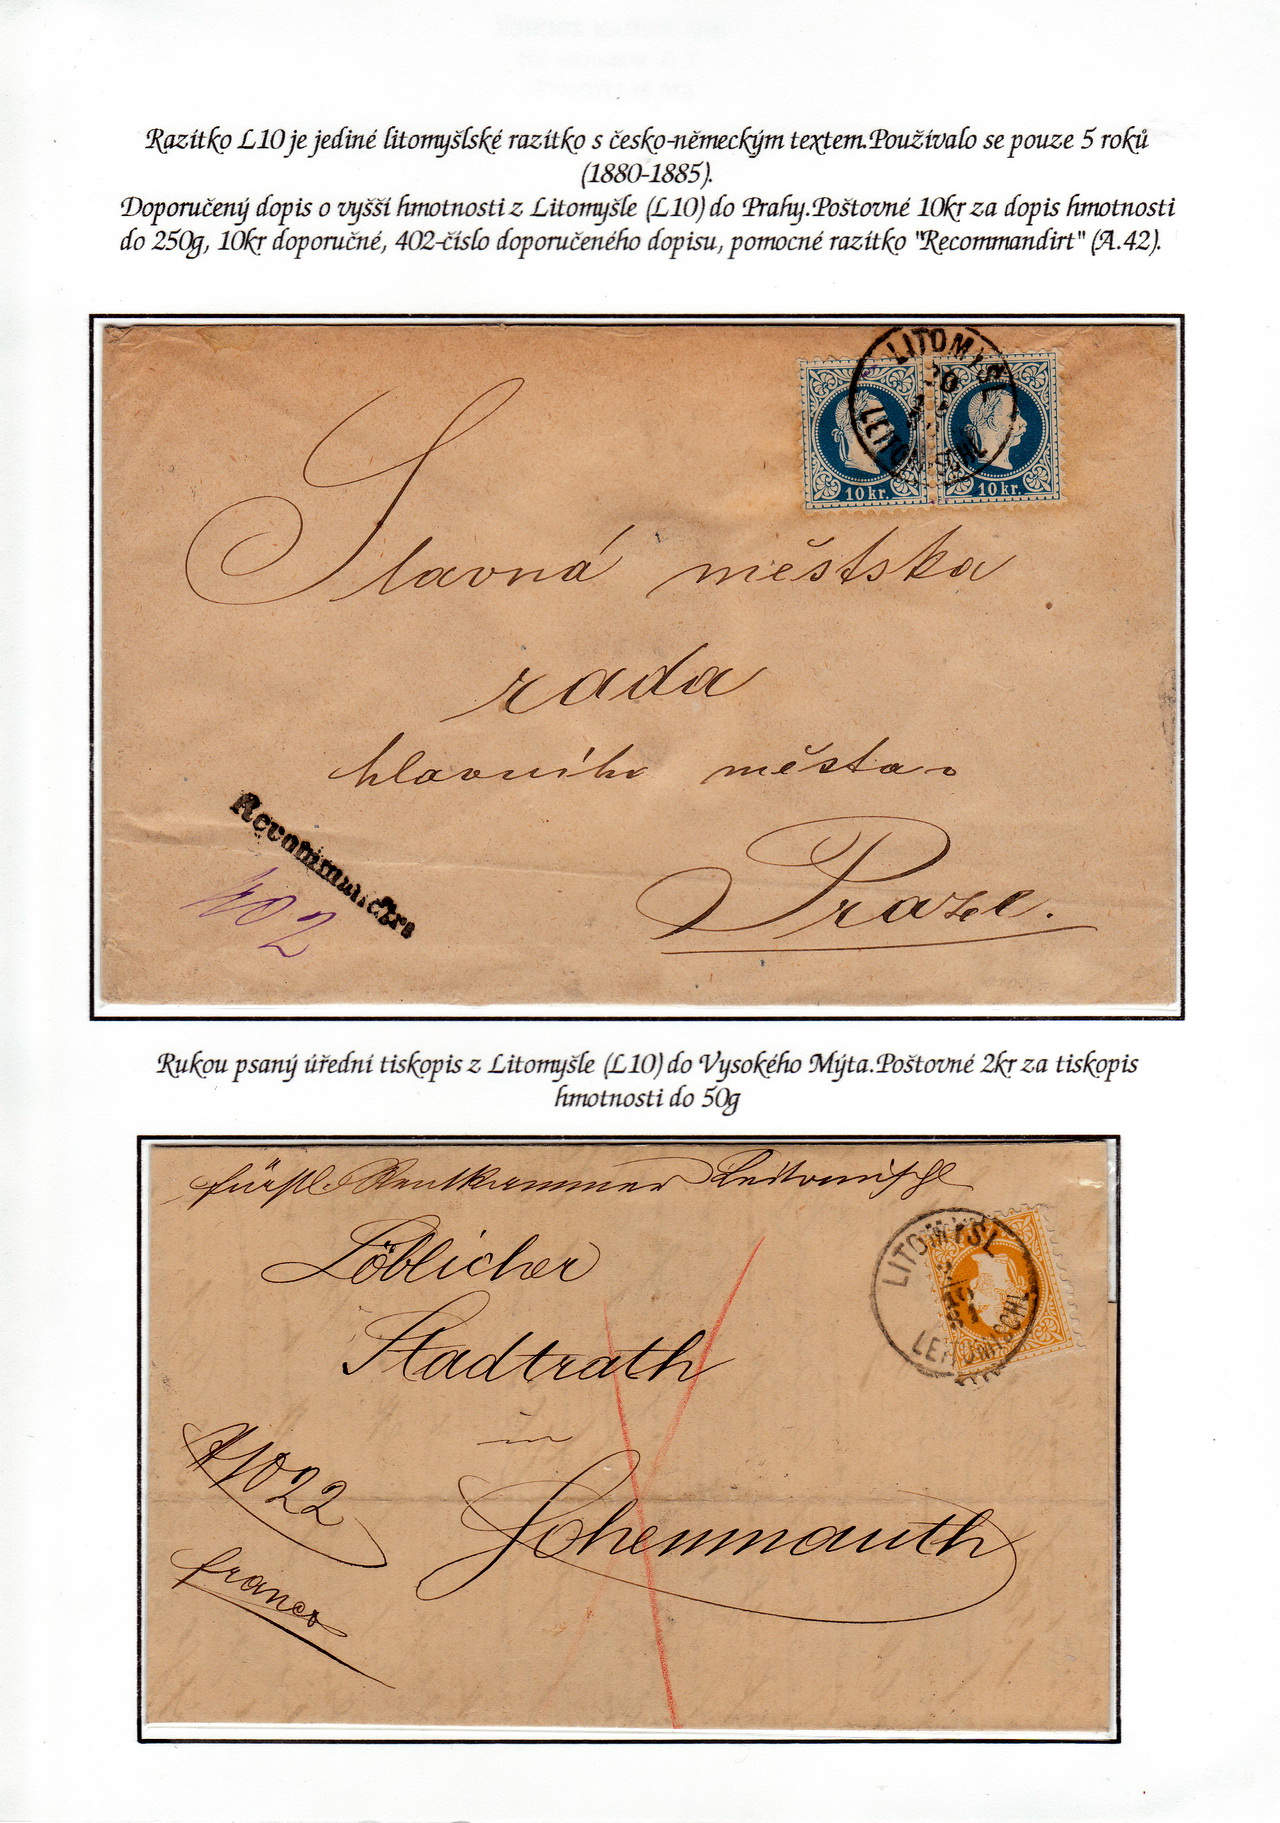 Razítko L10 je jediné litomyšlské razítko s česko-německým textem.Používalo se pouze 5 roků
(1880-1885).
Doporučený dopis o vyšší hmotnosti z Litomyšle (L10) do Prahy.Poštovné 10kr za dopis hmotnosti
do 250g, 10kr doporučné, 402-číslo doporučeného dopisu, pomocné razítko "Recommandirt" (A.42).
LITOMYSL
20
LEITOMISCHL
10 kr. 10 kr.
Slavná městska
rada
hlavního města
Praze.
Recommandirt
402
Rukou psaný úřední tiskopis z Litomyšle (L10) do Vysokého Mýta.Poštovné 2kr za tiskopis
hmotnosti do 50g
fürstl. Rentkammer Leitomischl
LITOMYSL
LEITOMISCHL
Löblicher
Stadtrath
in
Hohenmauth
1022
franco